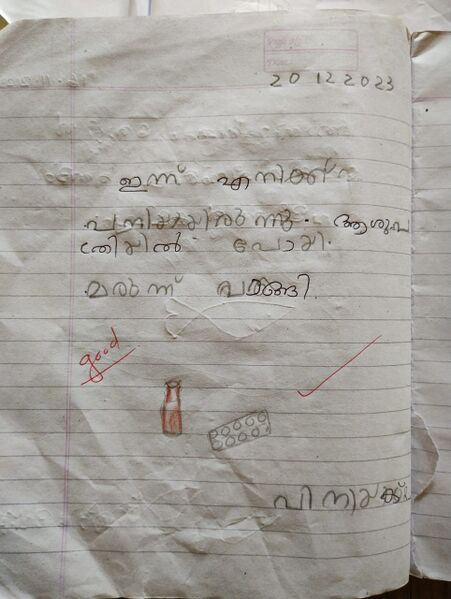 20 12 2023
ഇന്ന് എനിക്ക്
പനിയായിരുന്നു. ആശുപ
ത്രിയിൽ പോയി.
മരുന്ന് വാങ്ങി.
good